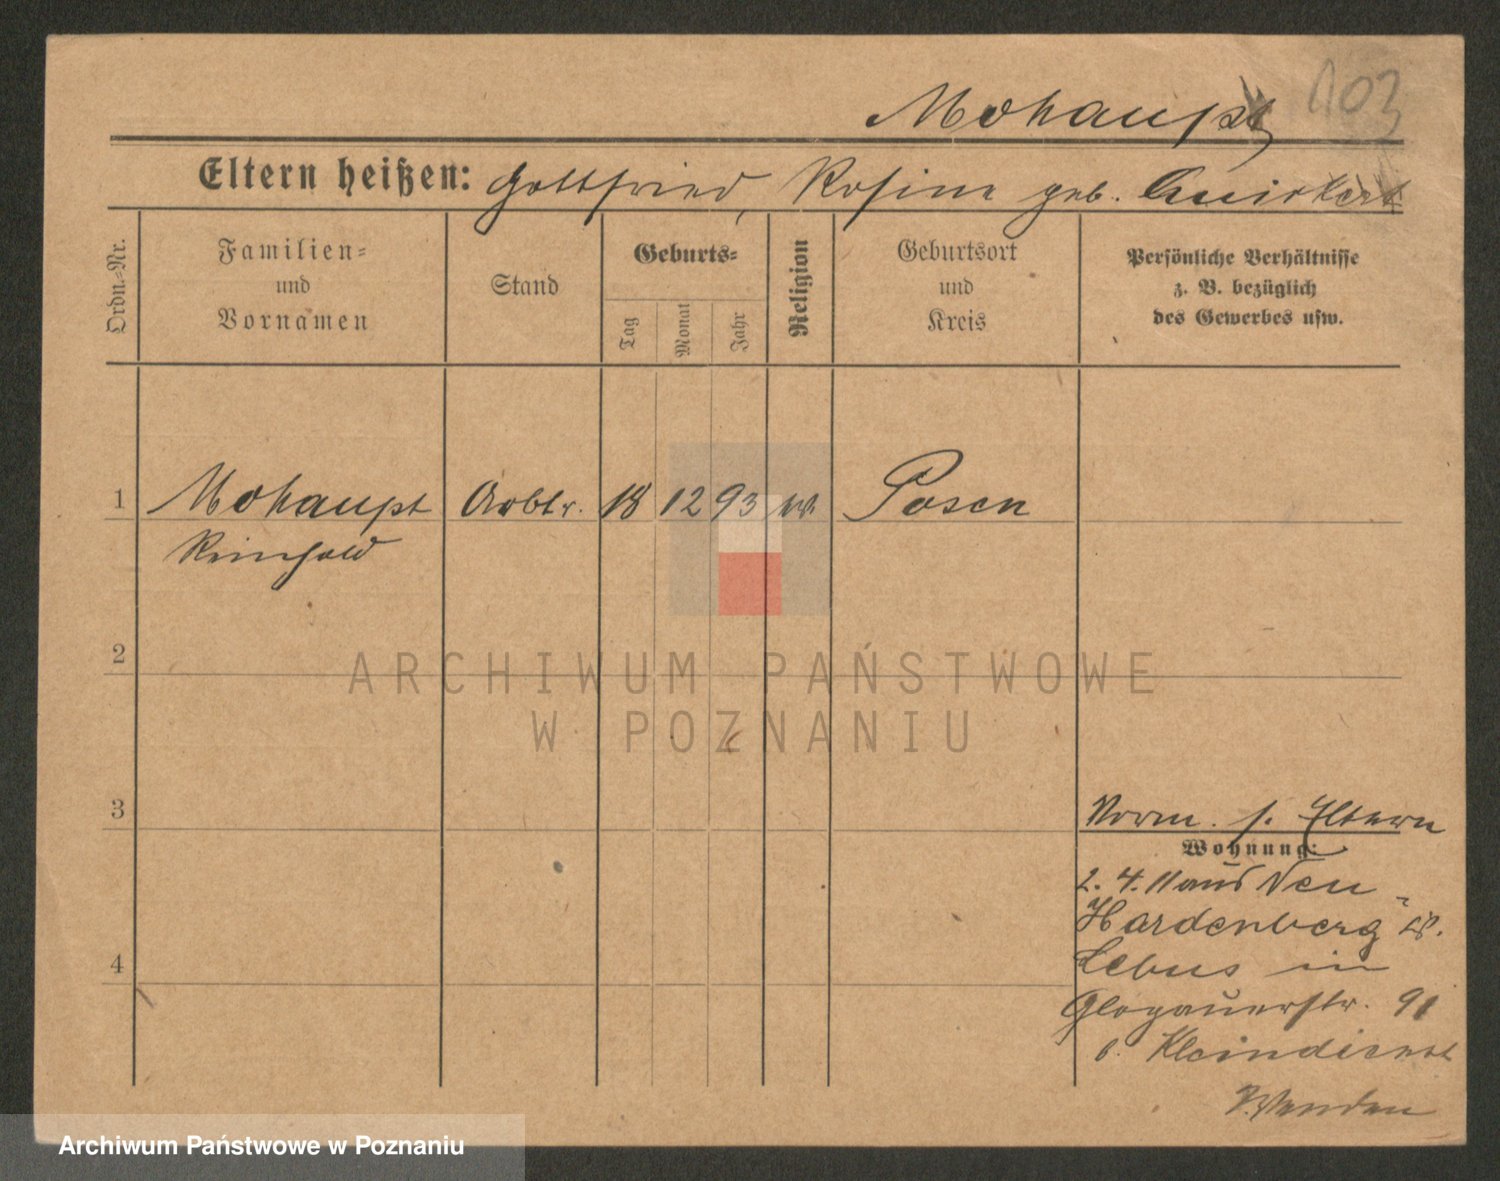 103
Mohaupt
Eltern heißen: Gottfried, Rosine geb.
Ordn.=Nr.
Familien=
und
Vornamen
Stand
Geburts=
Tag
Monat
Jahr
Religion
Geburtsort
und
Kreis
Persönliche Verhältnisse
z. B. bezüglich
des Gewerbes usw.
1 Mohaupt Arbtr. 18 12 93 Posen
Reinhold
2
ARCHIWUM PAŃSTWOWE
W POZNANIU
3
Norm. s. Eltern
Wohnung:
2. 4. 11 aus Neu-
Hardenberg
Lebus in
Glogauerstr. 91
b. Kleindienst
Wenden
4
Archiwum Państwowe w Poznaniu